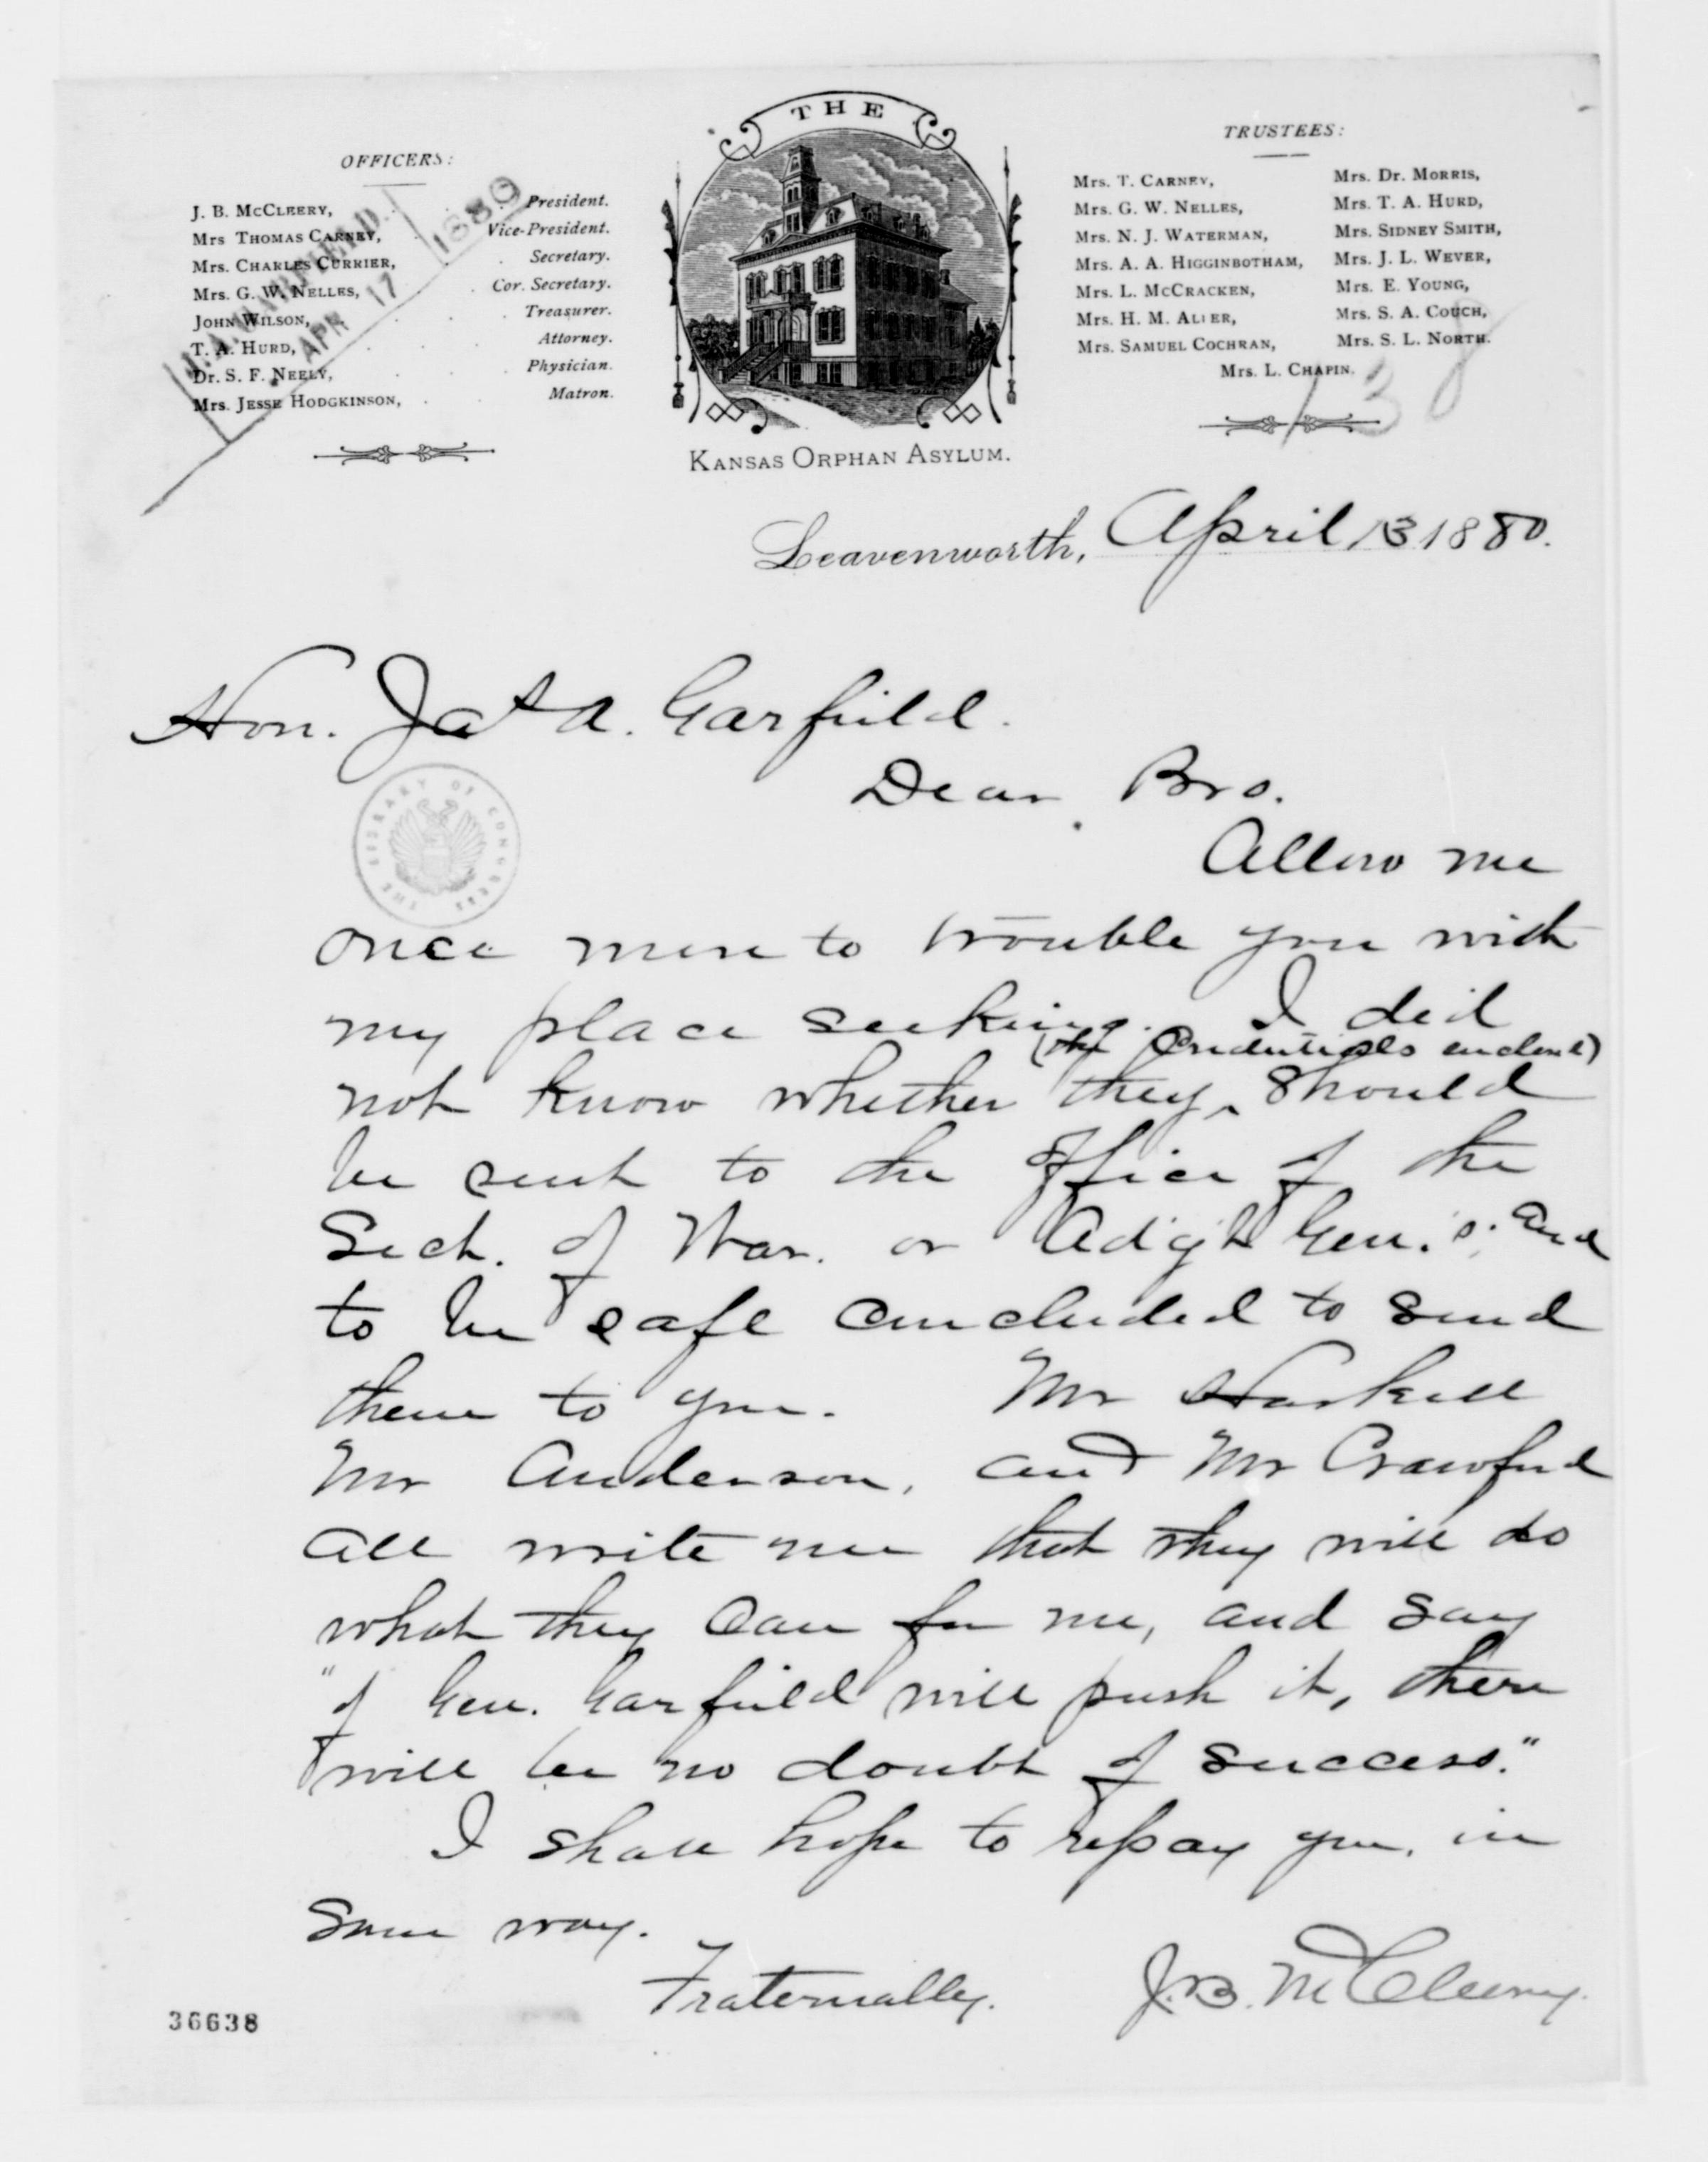 THE
KANSAS ORPHAN ASYLUM.
OFFICERS:
J. B. McCLEERY, President.
Mrs THOMAS CARNEY, Vice-President.
Mrs. CHARLES CURRIER, Secretary.
Mrs. G. W. NELLES, Cor. Secretary.
JOHN WILSON, Treasurer.
T. A. HURD, Attorney.
Dr. S. F. NEELY, Physician.
Mrs. JESSE HODGKINSON, Matron.
APR 17 1880
TRUSTEES:
Mrs. T. CARNEY, Mrs. Dr. MORRIS,
Mrs. G. W. NELLES, Mrs. T. A. HURD,
Mrs. N. J. WATERMAN, Mrs. SIDNEY SMITH,
Mrs. A. A. HIGGINBOTHAM, Mrs. J. L. WEVER,
Mrs. L. McCRACKEN, Mrs. E. YOUNG,
Mrs. H. M. ALLER, Mrs. S. A. COUCH,
Mrs. SAMUEL COCHRAN, Mrs. S. L. NORTH.
Mrs. L. CHAPIN.
138
Leavenworth, April 13 1880.
Hon. Jas A. Garfield.
THE LIBRARY OF CONGRESS
Dear Bro.
Allow me
once more to trouble you with
my place seeking. I did
(the Credentials enclosed)
not know whether they ‸ should
be sent to the office of the
Sect. of War. or Adjgt Gen.'s. and
to be safe concluded to send
them to you. Mr Haskell
Mr Anderson, and Mr Crawford
all write me that they will do
what they can for me, and say
"if Gen. Garfield will push it, there
will be no doubt of success."
I shall hope to repay you, in
some way.
Fraternally. J. B. McCleery.
36638